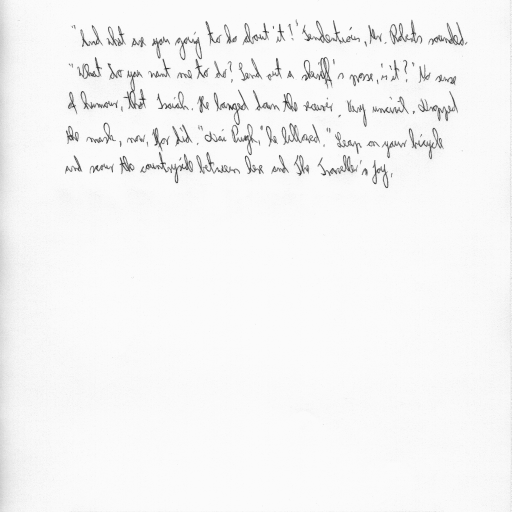 "And what are you going to do about it?" Tendentious, Mr. Roberts sounded.
"What do you want me to do? Send out a sheriff's posse, is it?" No sense
of humour, that Isaiah. He banged down the receiver. Very uncivil. Dropped
the mask, now, Thor did. "Dai Pugh," he bellowed. "Leap on your bicycle
and scour the countryside between here and The Traveller's Joy.